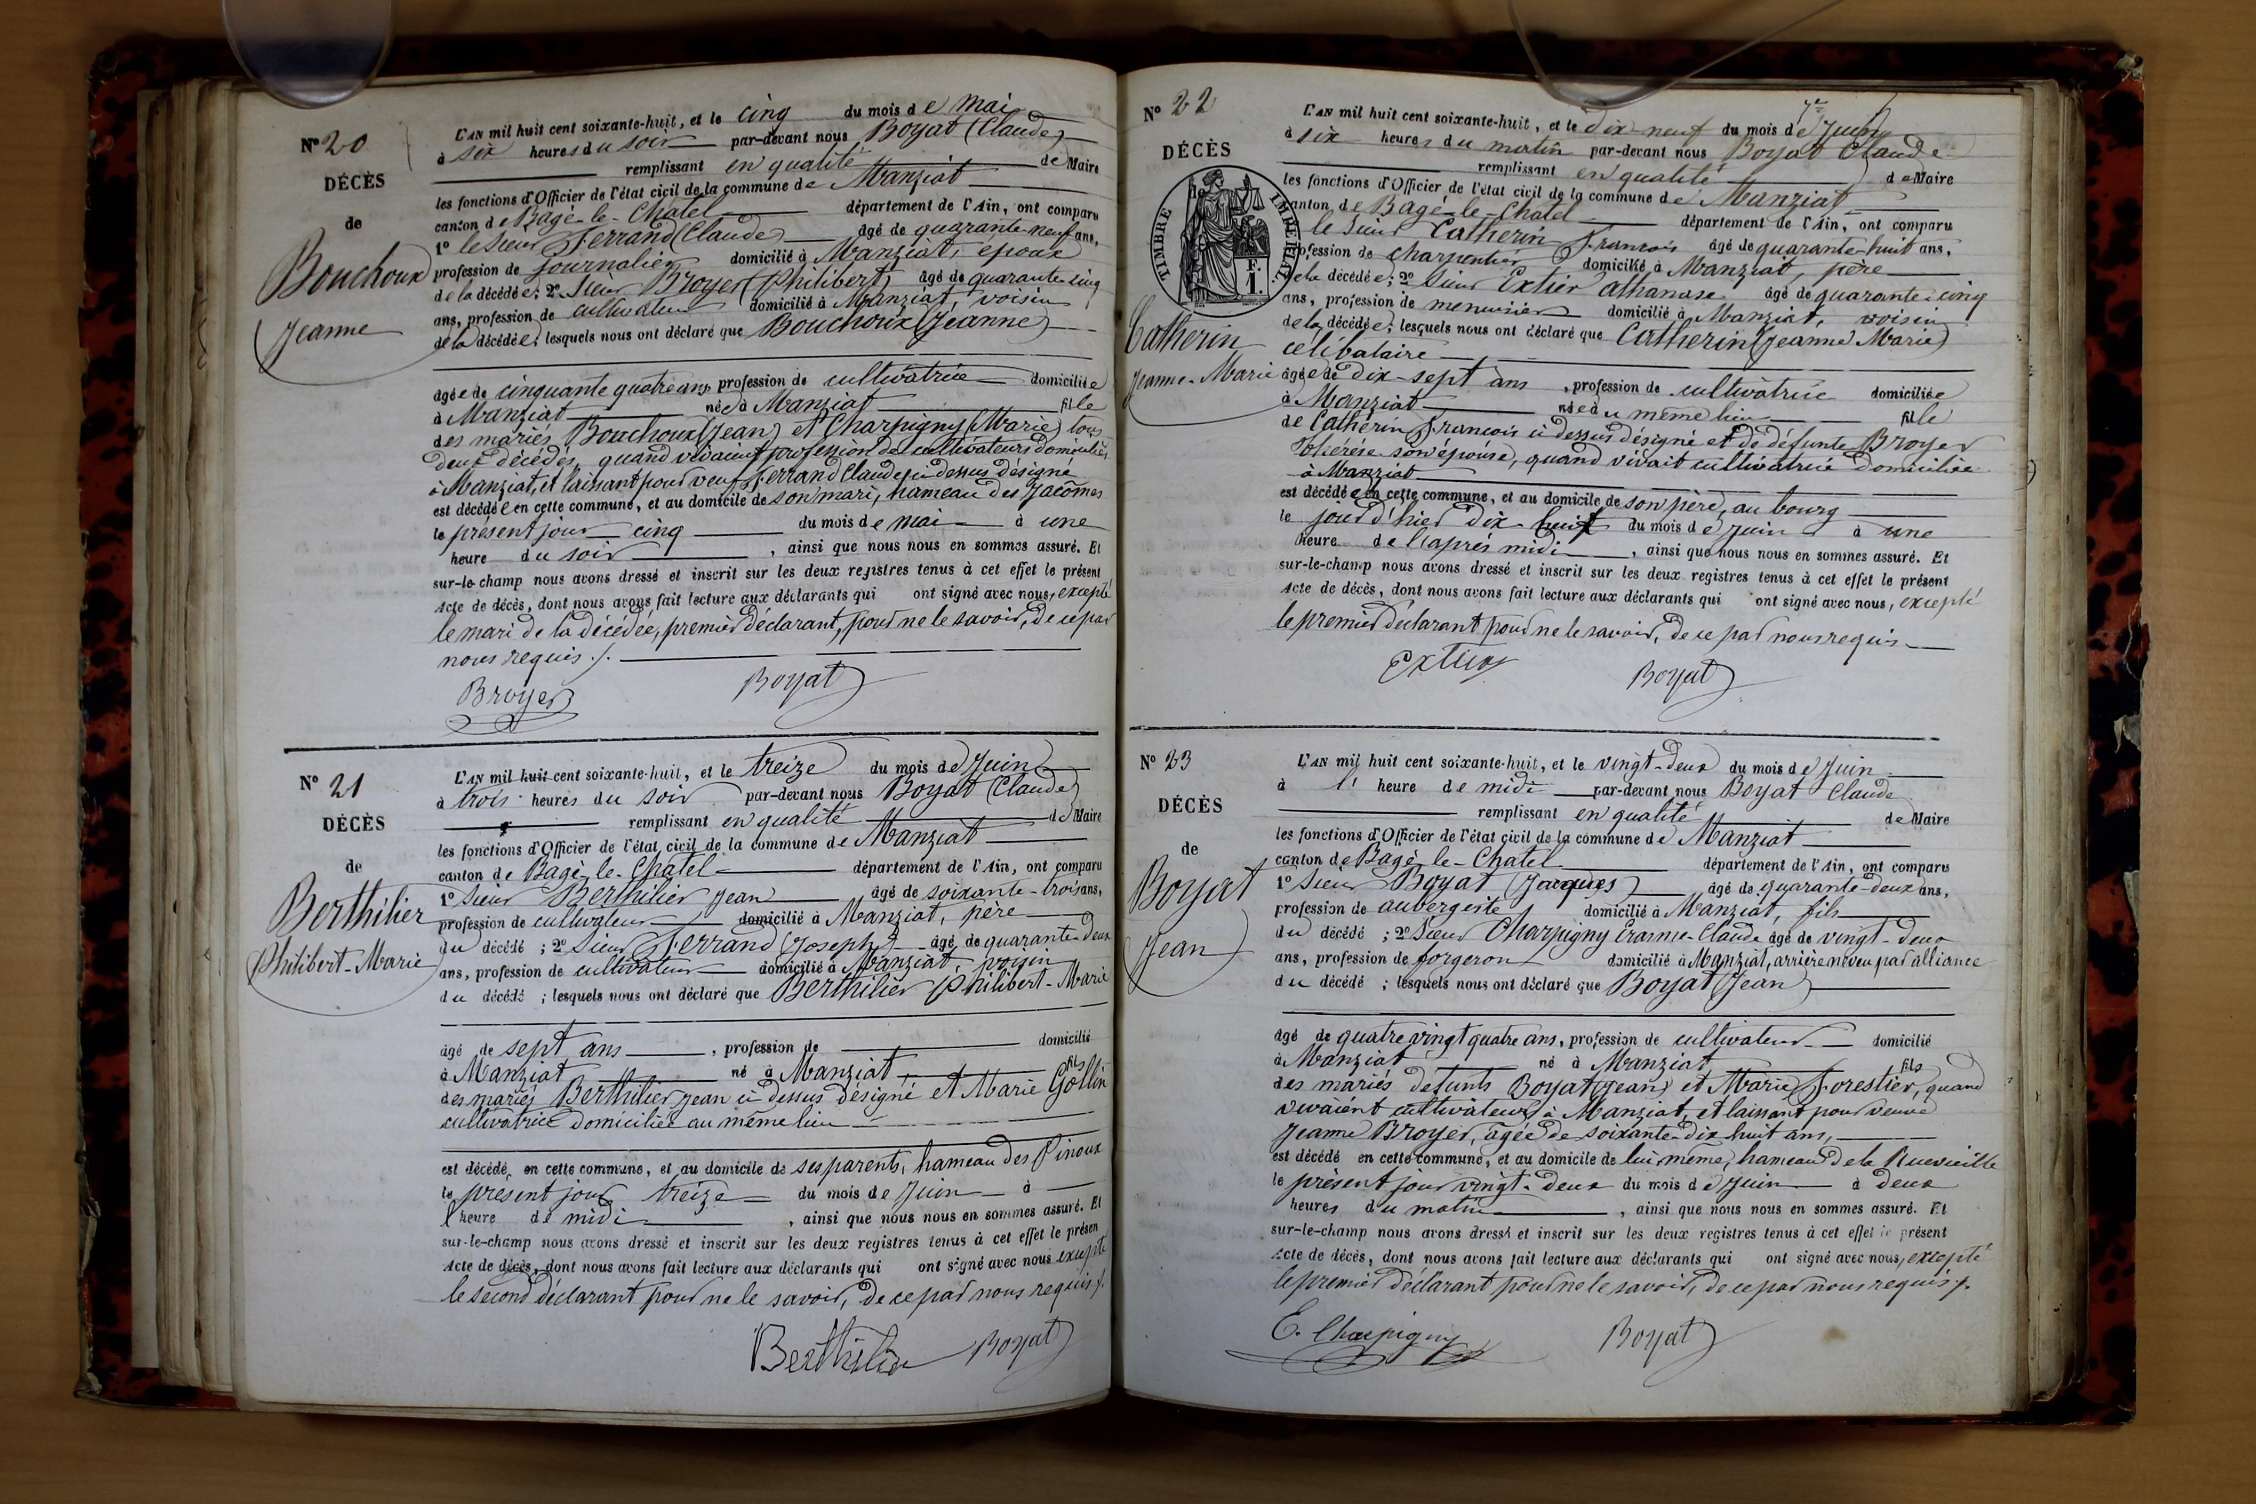 N° 20
DÉCÈS
de
Bouchoux
Jeanne
L'AN mil huit cent soixante-huit, et le cinq du mois de Mai
à six heures du soir par-devant nous Boyat (Claude)
remplissant en qualité de Maire
les fonctions d'Officier de l'état civil de la commune de Manziat
canton de Bagé-le-Chatel département de l'Ain, ont comparu
1° le Sieur Ferrand (Claude) âgé de quarante-neuf ans,
profession de journalier domicilié à Manziat, époux
de la décédée; 2° Sieur Broyer (Philibert) âgé de quarante cinq
ans, profession de cultivateur domicilié à Manziat, voisin
de la décédée; lesquels nous ont déclaré que Bouchoux (Jeanne)
âgée de cinquante quatre ans, profession de cultivatrice domiciliée
à Manziat née à Manziat fille
des mariés Bouchoux (Jean) et Charpigny (Marie) tous
deux décédés, quand vivaient profession de cultivateurs domiciliés
à Manziat, et laissant pour veuf Ferrand Claude ci-dessus désigné
est décédée en cette commune, et au domicile de son mari, hameau des Jacômes
le présent jour cinq du mois de mai à une
heure du soir, ainsi que nous nous en sommes assuré. Et
sur-le-champ nous avons dressé et inscrit sur les deux registres tenus à cet effet le présent
Acte de décès, dont nous avons fait lecture aux déclarants qui ont signé avec nous, excepté
le mari de la décédée, premier déclarant, pour ne le savoir, de ce par
nous requis ./.
Broyer Boyat
N° 21
DÉCÈS
de
Berthilier
Philibert-Marie
L'AN mil huit cent soixante-huit, et le treize du mois de Juin
à trois heures du soir par-devant nous Boyat (Claude)
remplissant en qualité de Maire
les fonctions d'Officier de l'état civil de la commune de Manziat
canton de Bagé-le-Chatel département de l'Ain, ont comparu
1° Sieur Berthilier Jean âgé de soixante-trois ans,
profession de cultivateur domicilié à Manziat, père
du décédé ; 2° Sieur Ferrand (Joseph) âgé de quarante-deux
ans, profession de cultivateur domicilié à Manziat, voisin
du décédé ; lesquels nous ont déclaré que Berthilier Philibert-Marie
âgé de sept ans, profession de domicilié
à Manziat né à Manziat, fils
des mariés Berthilier Jean ci dessus désigné et Marie Gollin
cultivatrice domiciliée au même lieu
est décédé en cette commune, et au domicile de ses parents, hameau des Pinoux
le présent jour treize du mois de Juin à
l'heure de midi, ainsi que nous nous en sommes assuré. Et
sur-le-champ nous avons dressé et inscrit sur les deux registres tenus à cet effet le présen
Acte de décès, dont nous avons fait lecture aux déclarants qui ont signé avec nous excepté
le second déclarant pour ne le savoir, de ce par nous requis ./.
Berthilier Boyat
N° 22
DÉCÈS
TIMBRE IMPÉRIAL
F.
1.
Catherin
Jeanne-Marie
L'AN mil huit cent soixante-huit, et le dix-neuf du mois de Juin
à six heures du matin par-devant nous Boyat Claude
remplissant en qualité de Maire
les fonctions d'Officier de l'état civil de la commune de Manziat
canton de Bagé-le-Chatel département de l'Ain, ont comparu
le Sieur Catherin François âgé de quarante-huit ans,
profession de charpentier domicilié à Manziat, père
de la décédée; 2° Sieur Extier athanase âgé de quarante-cinq
ans, profession de menuisier domicilié à Manziat, voisin
de la décédée; lesquels nous ont déclaré que Catherin (Jeanne Marie)
célibataire
âgée de dix-sept ans, profession de cultivatrice domiciliée
à Manziat née au même lieu fille
de Catherin François ci dessus désigné et de défunte Broyer
Thérèse son épouse, quand vivait cultivatrice domiciliée
à Manziat
est décédée en cette commune, et au domicile de son père, au bourg
le jour d'hier dix-huit du mois de Juin à une
heure de l'après midi, ainsi que nous nous en sommes assuré. Et
sur-le-champ nous avons dressé et inscrit sur les deux registres tenus à cet effet le présent
Acte de décès, dont nous avons fait lecture aux déclarants qui ont signé avec nous, excepté
le premier déclarant pour ne le savoir, de ce par nous requis
Extier Boyat
N° 23
DÉCÈS
de
Boyat
Jean
L'AN mil huit cent soixante-huit, et le vingt-deux du mois de Juin
à l' heure de midi par-devant nous Boyat Claude
remplissant en qualité de Maire
les fonctions d'Officier de l'état civil de la commune de Manziat
canton de Bagé-le-Chatel département de l'Ain, ont comparu
1° Sieur Boyat (Jacques) âgé de quarante-deux ans,
profession de aubergiste domicilié à Manziat, fils
du décédé ; 2° Sieur Charpigny Erasme-Claude âgé de vingt-deux
ans, profession de forgeron domicilié à Manziat, arrière neveu par alliance
du décédé ; lesquels nous ont déclaré que Boyat (Jean)
âgé de quatre vingt quatre ans, profession de cultivateur domicilié
à Manziat né à Manziat fils
des mariés defunts Boyat (Jean) et Marie Forestier, quand
vivaient cultivateurs à Manziat, et laissant pour veuve
Jeanne Broyer, âgée de soixante-dix huit ans,
est décédé en cette commune, et au domicile de lui même, hameau de la Ruevieille
le présent jour vingt-deux du mois de Juin à deux
heures du matin, ainsi que nous nous en sommes assuré. Et
sur-le-champ nous avons dressé et inscrit sur les deux registres tenus à cet effet le présent
Acte de décès, dont nous avons fait lecture aux déclarants qui ont signé avec nous, excepté
le premier déclarant pour ne le savoir, de ce par nous requis ./.
E. Charpigny Boyat